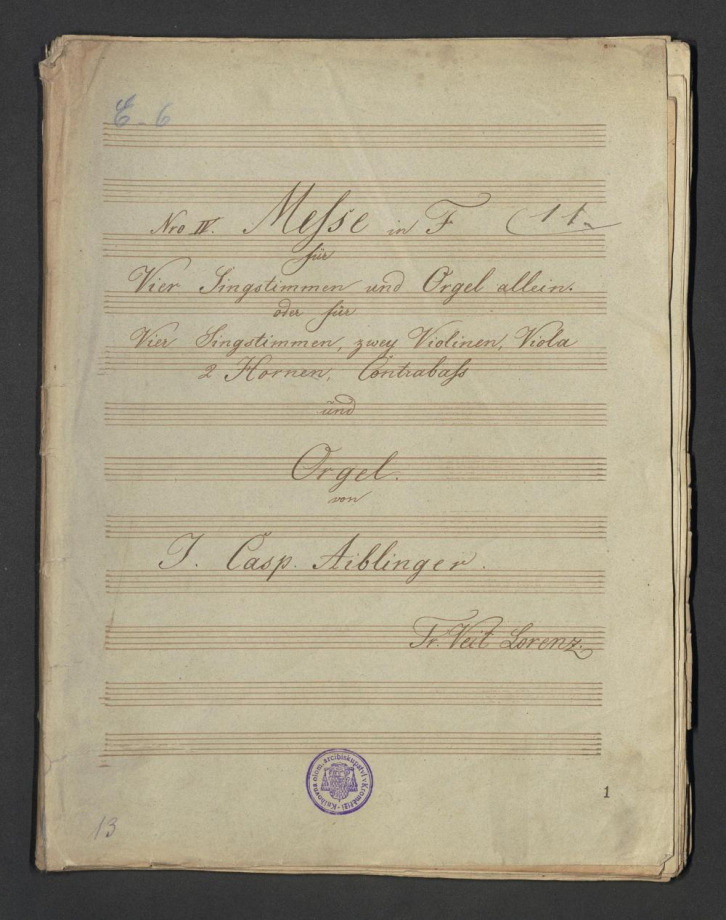 C. 6
Nro IV. Messe in F 11
für
Vier Singstimmen und Orgel allein.
oder für
Vier Singstimmen, zwey Violinen, Viola
2 Hornen, Contrabass
und
Orgel.
von
J. Casp. Aiblinger.
Fr. Veit Lorenz
Knihovna olom. arcibiskupství v Kroměříži
1
13